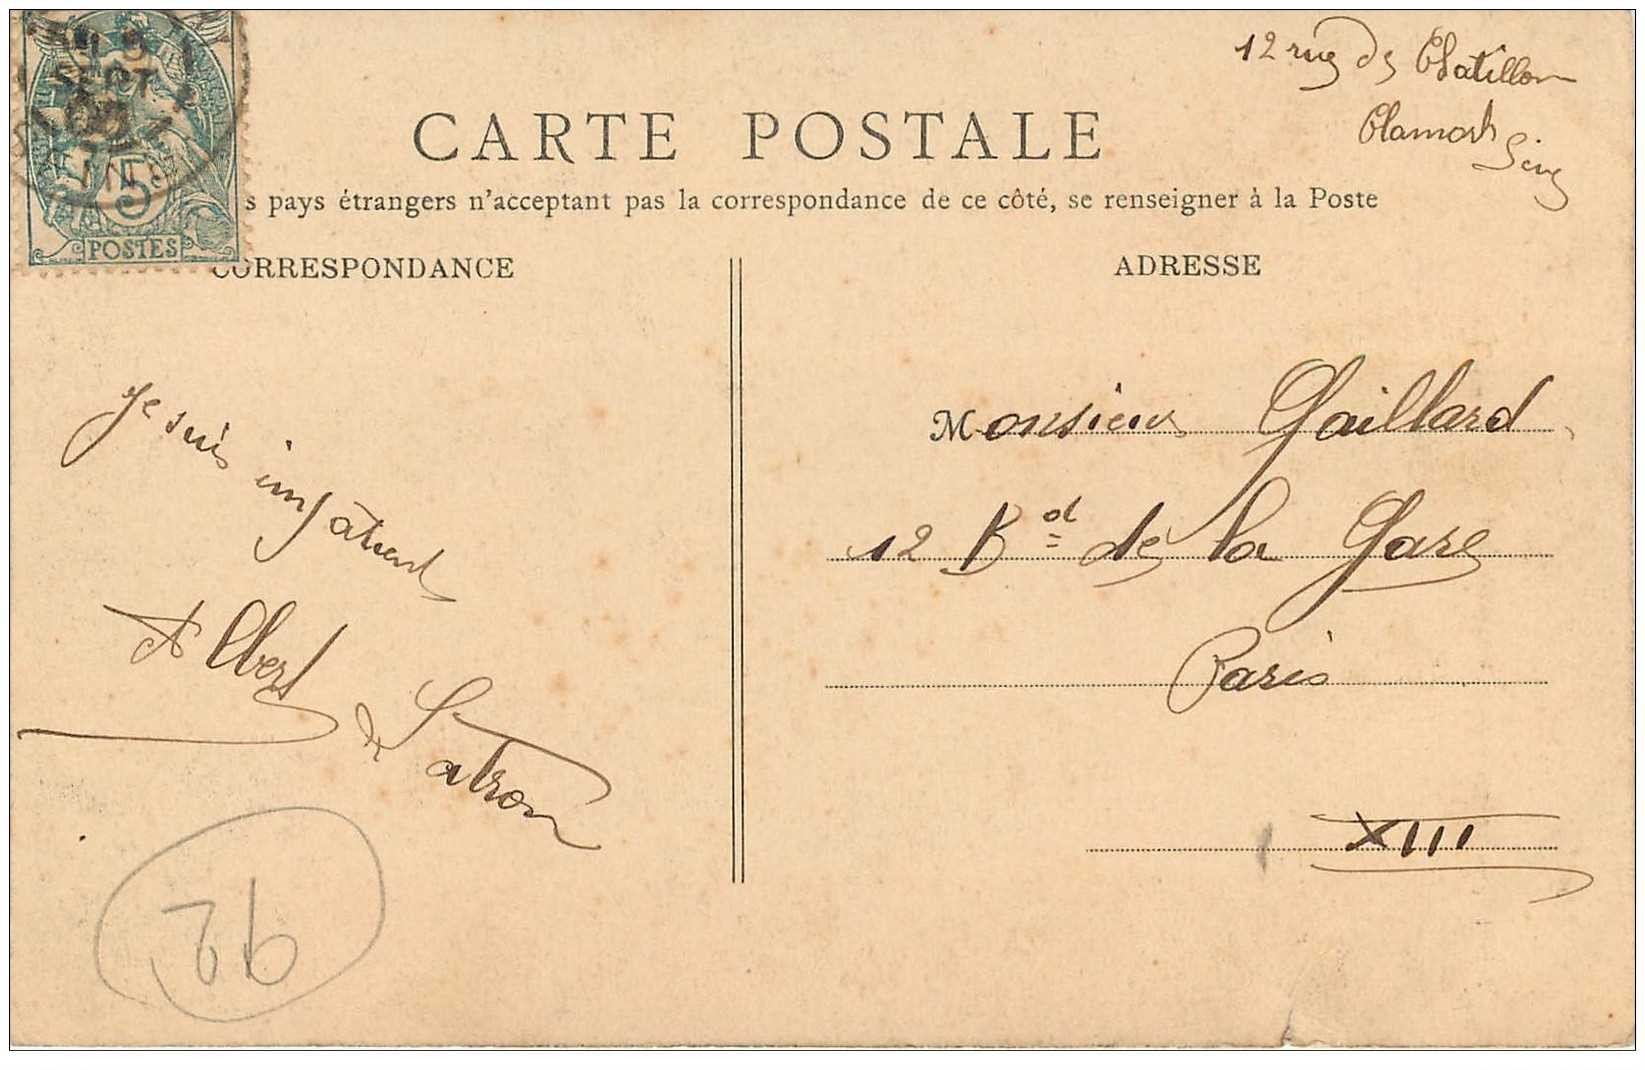 12 rue de Chatillon
Clamart
Seine
CARTE POSTALE
s pays étrangers n'acceptant pas la correspondance de ce côté, se renseigner à la Poste
CORRESPONDANCE
ADRESSE
SEPT
5
POSTES
Je suis impatient
Albert
Latron
Monsieur Gaillard
12 Bd de la Gare
Paris
XIII
92